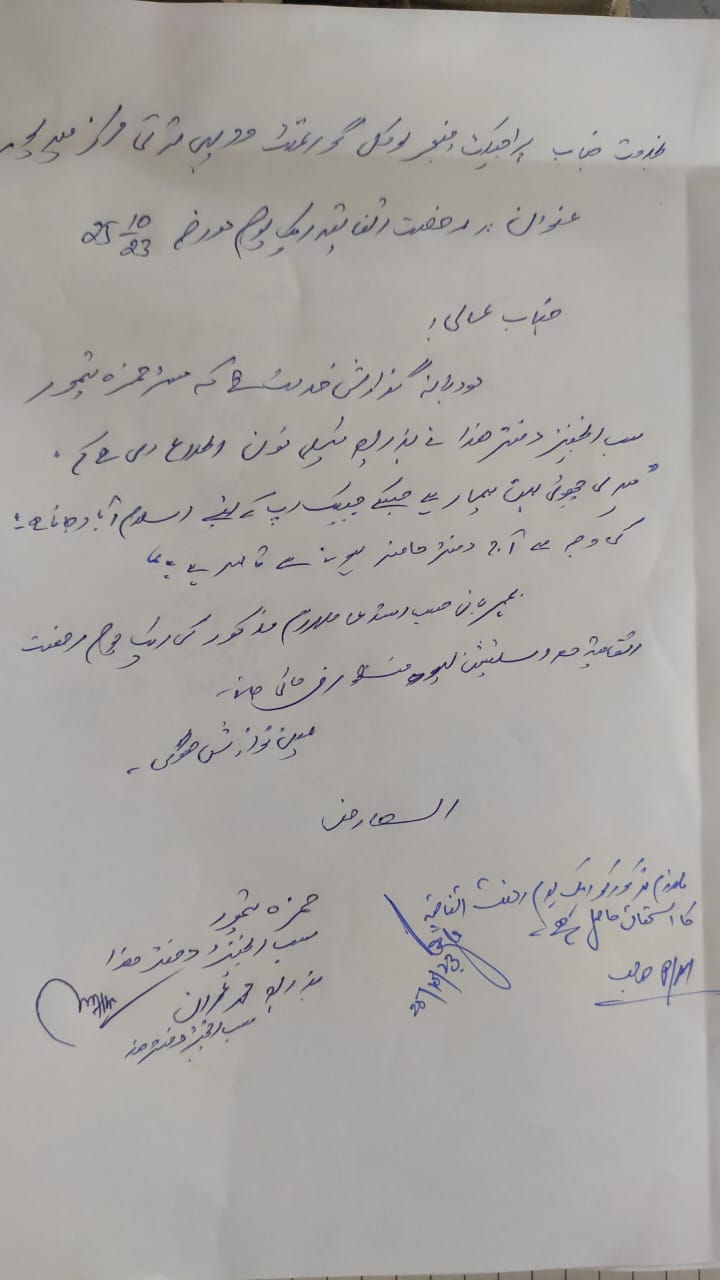 بخدمت جناب پراجیکٹ منیجر لوکل گورنمنٹ و دیہی ترقی مرکز میرپور
عنوان :۔ رخصت اتفاقیہ ایک یوم مورخہ 25/10/23
جناب عالی!
مودبانہ گزارش خدمت ہے کہ مسٹر حمزہ تیمور
سب انجینئر دفتر ھذا نے بذریعہ ٹیلی فون اطلاع دی ہے کہ
"میری بیمار ہے جسکے چیک اپ کے لیئے اسلام آباد جانا ہے
کی وجہ سے آج دفتر حاضر ہونے سے قاصر ہے"
مہربانی حسب استدعا ملازم مذکور کی ایک یوم رخصت
اتفاقیہ معہ اسٹیشن لیو منظور فرمائی جائے۔
عین نوازش ہوگی۔
العارض
حمزہ تیمور
سب انجینئر دفتر ھذا
بذریعہ محمد عمران
سب انجینئر دفتر ھذا
ملازم مذکور کو ایک یوم رخصت اتفاقیہ
کا استحقاق حاصل ہے۔
P/M صاحب
25/10/23